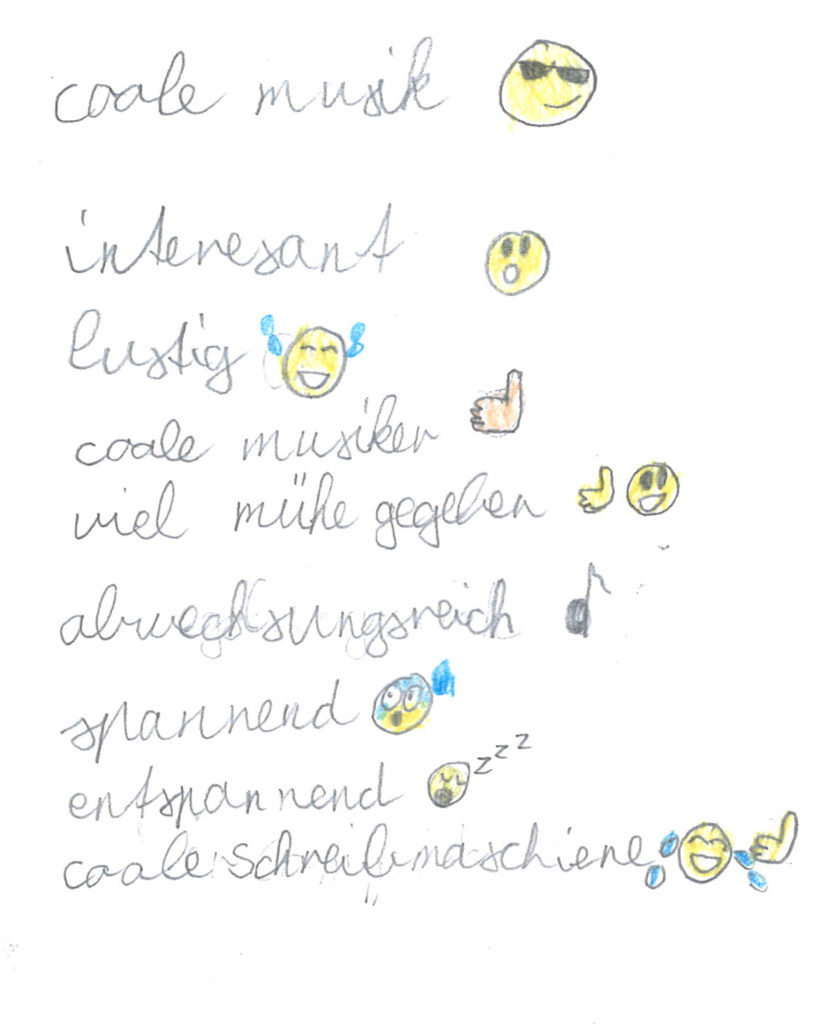 coale musik
interesant
lustig
coale musiker
viel mühe gegeben
abwechsungsreich
spannend
entspannend zzz
coale schreibmaschiene